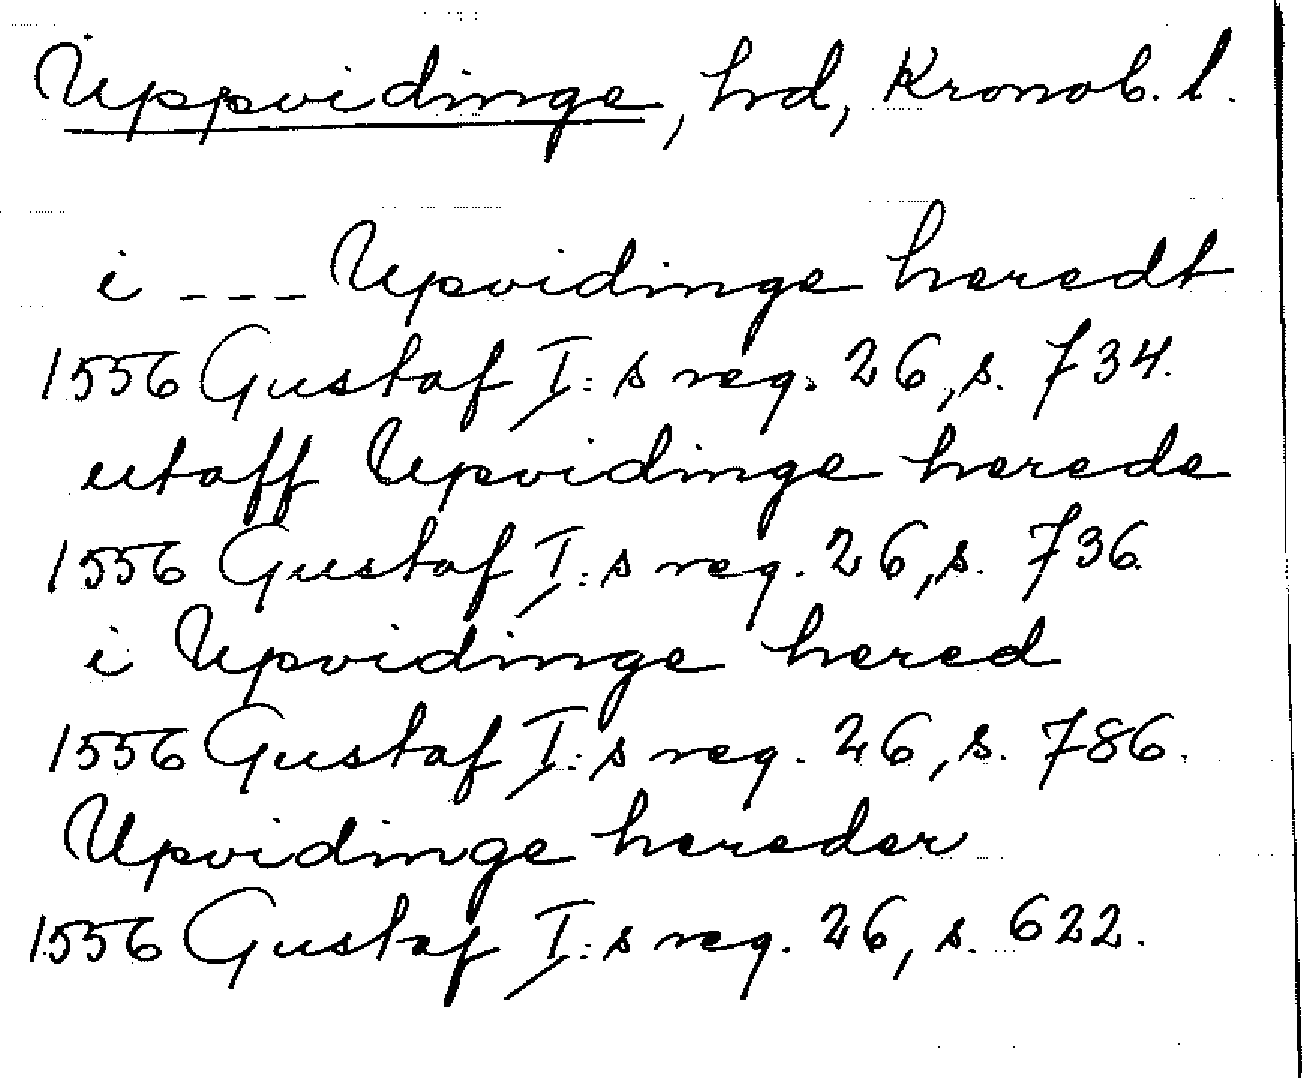 Uppvidinge, hd, Kronob. l.
i --- Upvidinge heredt
1556 Gustaf I:s reg. 26, s. 734.
utaff Upvidinge herede
1556 Gustaf I:s reg. 26, s. 736.
i Upvidinge hered
1556 Gustaf I:s reg. 26, s. 786.
Upvidinge hereder
1556 Gustaf I:s reg. 26, s. 622.